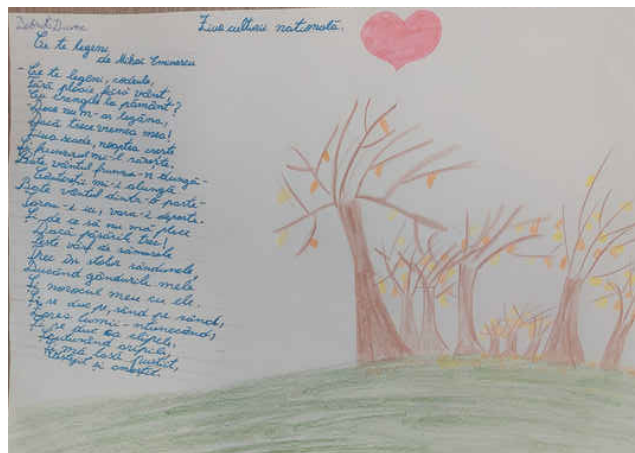 Ziua culturii naționale.
Ce te legeni,
de Mihai Eminescu
- Ce te legeni, codrule,
Fără ploaie, fără vânt,
Cu crengile la pământ?
- De ce nu m-aș legăna,
Dacă trece vremea mea!
Ziua scade, noaptea crește
Și frunzișul mi-l rărește.
Bate vântul frunza-n dungă -
Cântăreții mi-i alungă
Bate vântul dintr-o parte -
Iarna-i ici, vara-i departe.
Și de ce să nu mă plec
Dacă păsările trec!
Peste vârf de rămurele
Trec în stoluri rândunele,
Ducând gândurile mele
Și norocul meu cu ele.
Și se duc pe rând, pe rând,
Zarea lumii-ntunecând,
Și se duc ca clipele,
Scuturând aripile,
Și mă lasă pustiit,
Veștejit și amorțit.